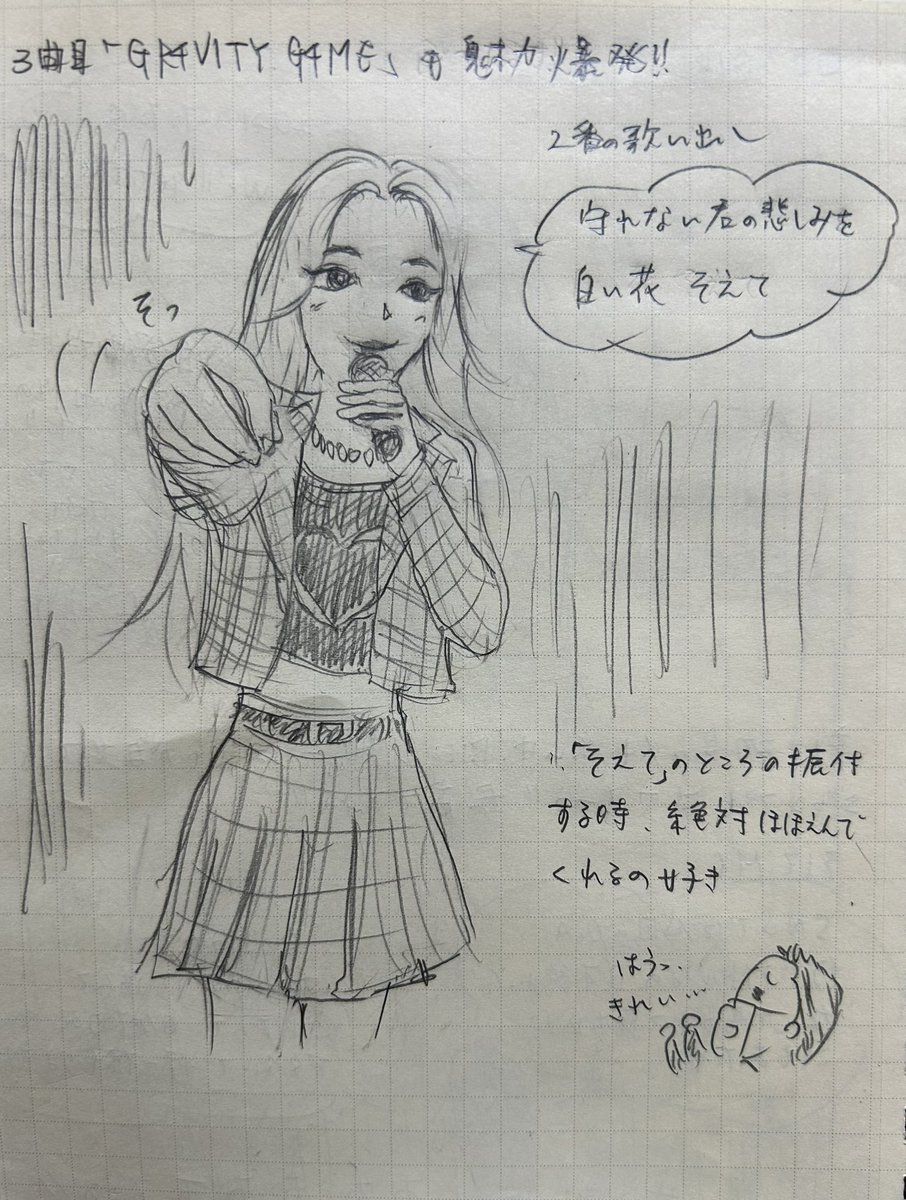 3曲目「GRAVITY GAME」も魅力爆発!!
2番の歌い出し
守れない君の悲しみを
白い花 そえて
そっ
「そえて」のところの振付
する時、絶対ほほえんで
くれるの好き
はうっ..
きれい…